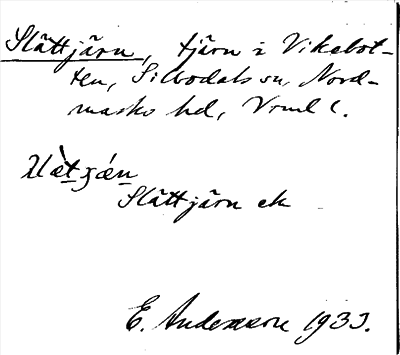 Slättjärn, tjärn i Vikebot-
ten, Silbodals sn, Nord-
marks hd, Vrml l.
Slättjärn ek
E. Andersson 1933.